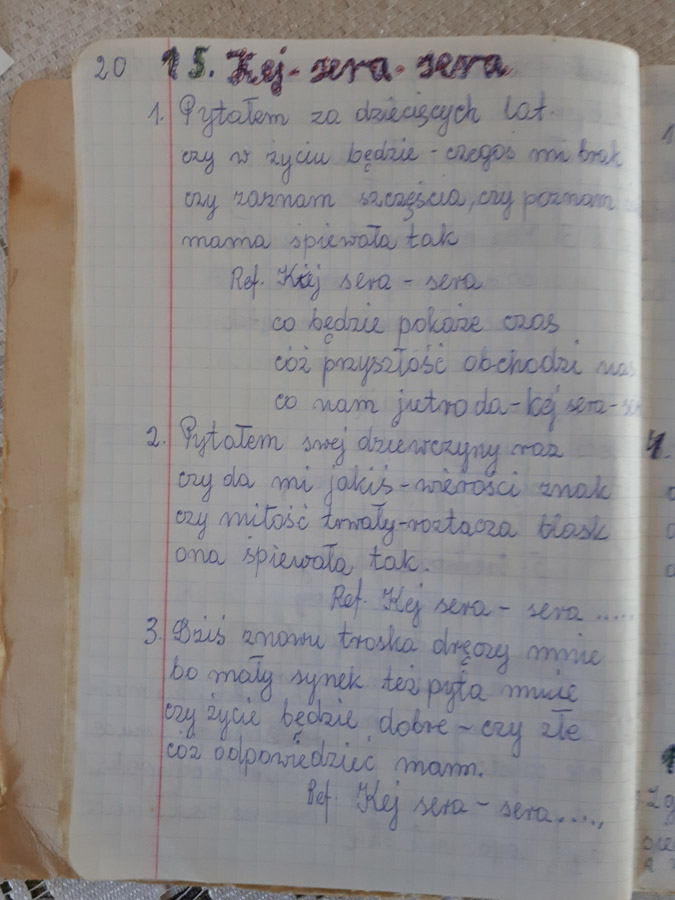 20 15. Kej-sera-sera
1. Pytałem za dziecięcych lat
czy w życiu będzie - czegoś mi brak
czy zaznam szczęścia, czy poznam
mama śpiewała tak
Ref. Kiej sera - sera
co będzie pokaże czas
cóż przyszłość obchodzi nas
co nam jutro da - kej sera-
2. Pytałem swej dziewczyny raz
czy da mi jakiś - wierości znak
czy miłość trwały - roztacza blask
ona śpiewała tak.
Ref. Kej sera - sera .....
3. Dziś znowu troska dręczy mnie
bo mały synek też pyta mnie
czy życie będzie dobre - czy złe
cóż odpowiedzieć mam.
Ref. Kej sera - sera .....